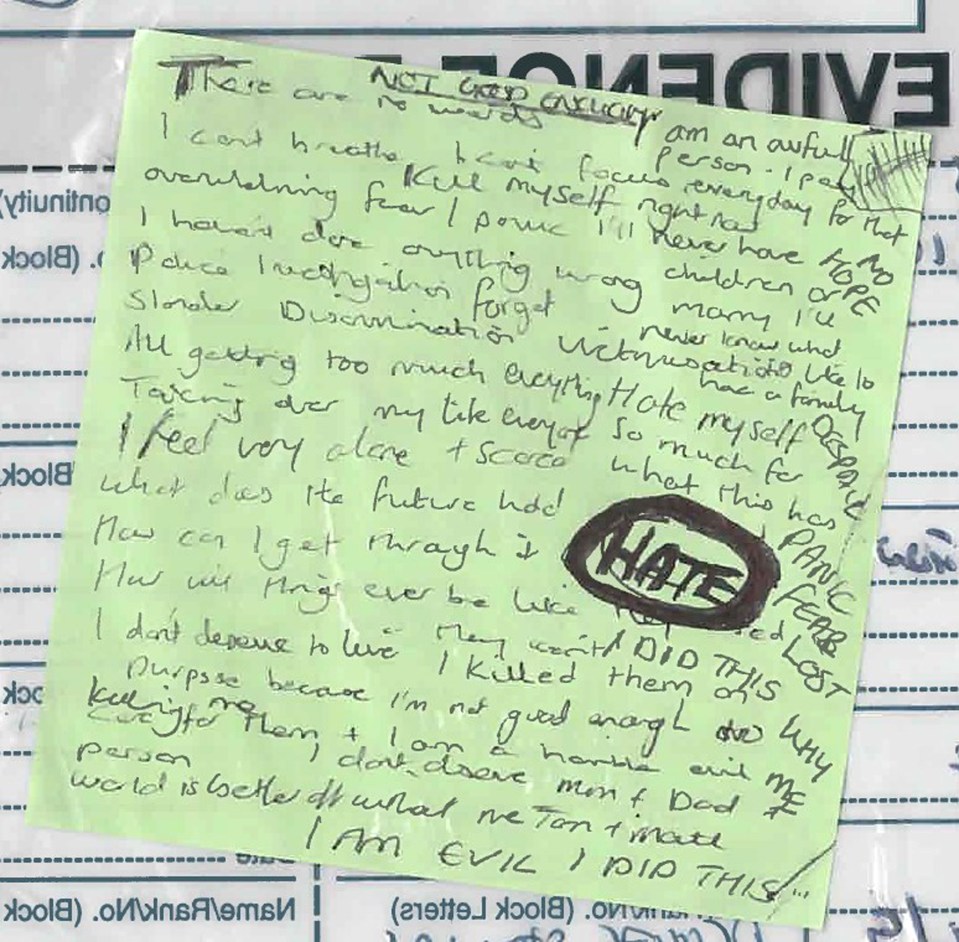 NOT GOOD ENOUGH
There are no words
I can't breathe I can't focus
overwhelming fear / panic
Kill myself right now
I haven't done anything wrong
Police Investigation forget
Slander Discrimination Victimisation
All getting too much everything
Taking over my life everyday
I feel very alone + scared
What does the future hold
How can I get through it
How will things ever be like
I don't deserve to live
I killed them on
purpose because I'm not good enough
caring for them + I am a horrible evil
person
I don't deserve Mum + Dad
world is better off without me
I AM EVIL I DID THIS
am an awful
person - I pay
everyday for that
I'll never have
children or
marry I'll
never know what
like to
have a family
Hate myself
so much for
what this has
HATE
I DID THIS
NO
HOPE
DESPAIR
PANIC
FEAR
LOST
WHY
ME
killing me
EVIDENCE
(Block
(Block Letters)
Name/Rank/No. (Block